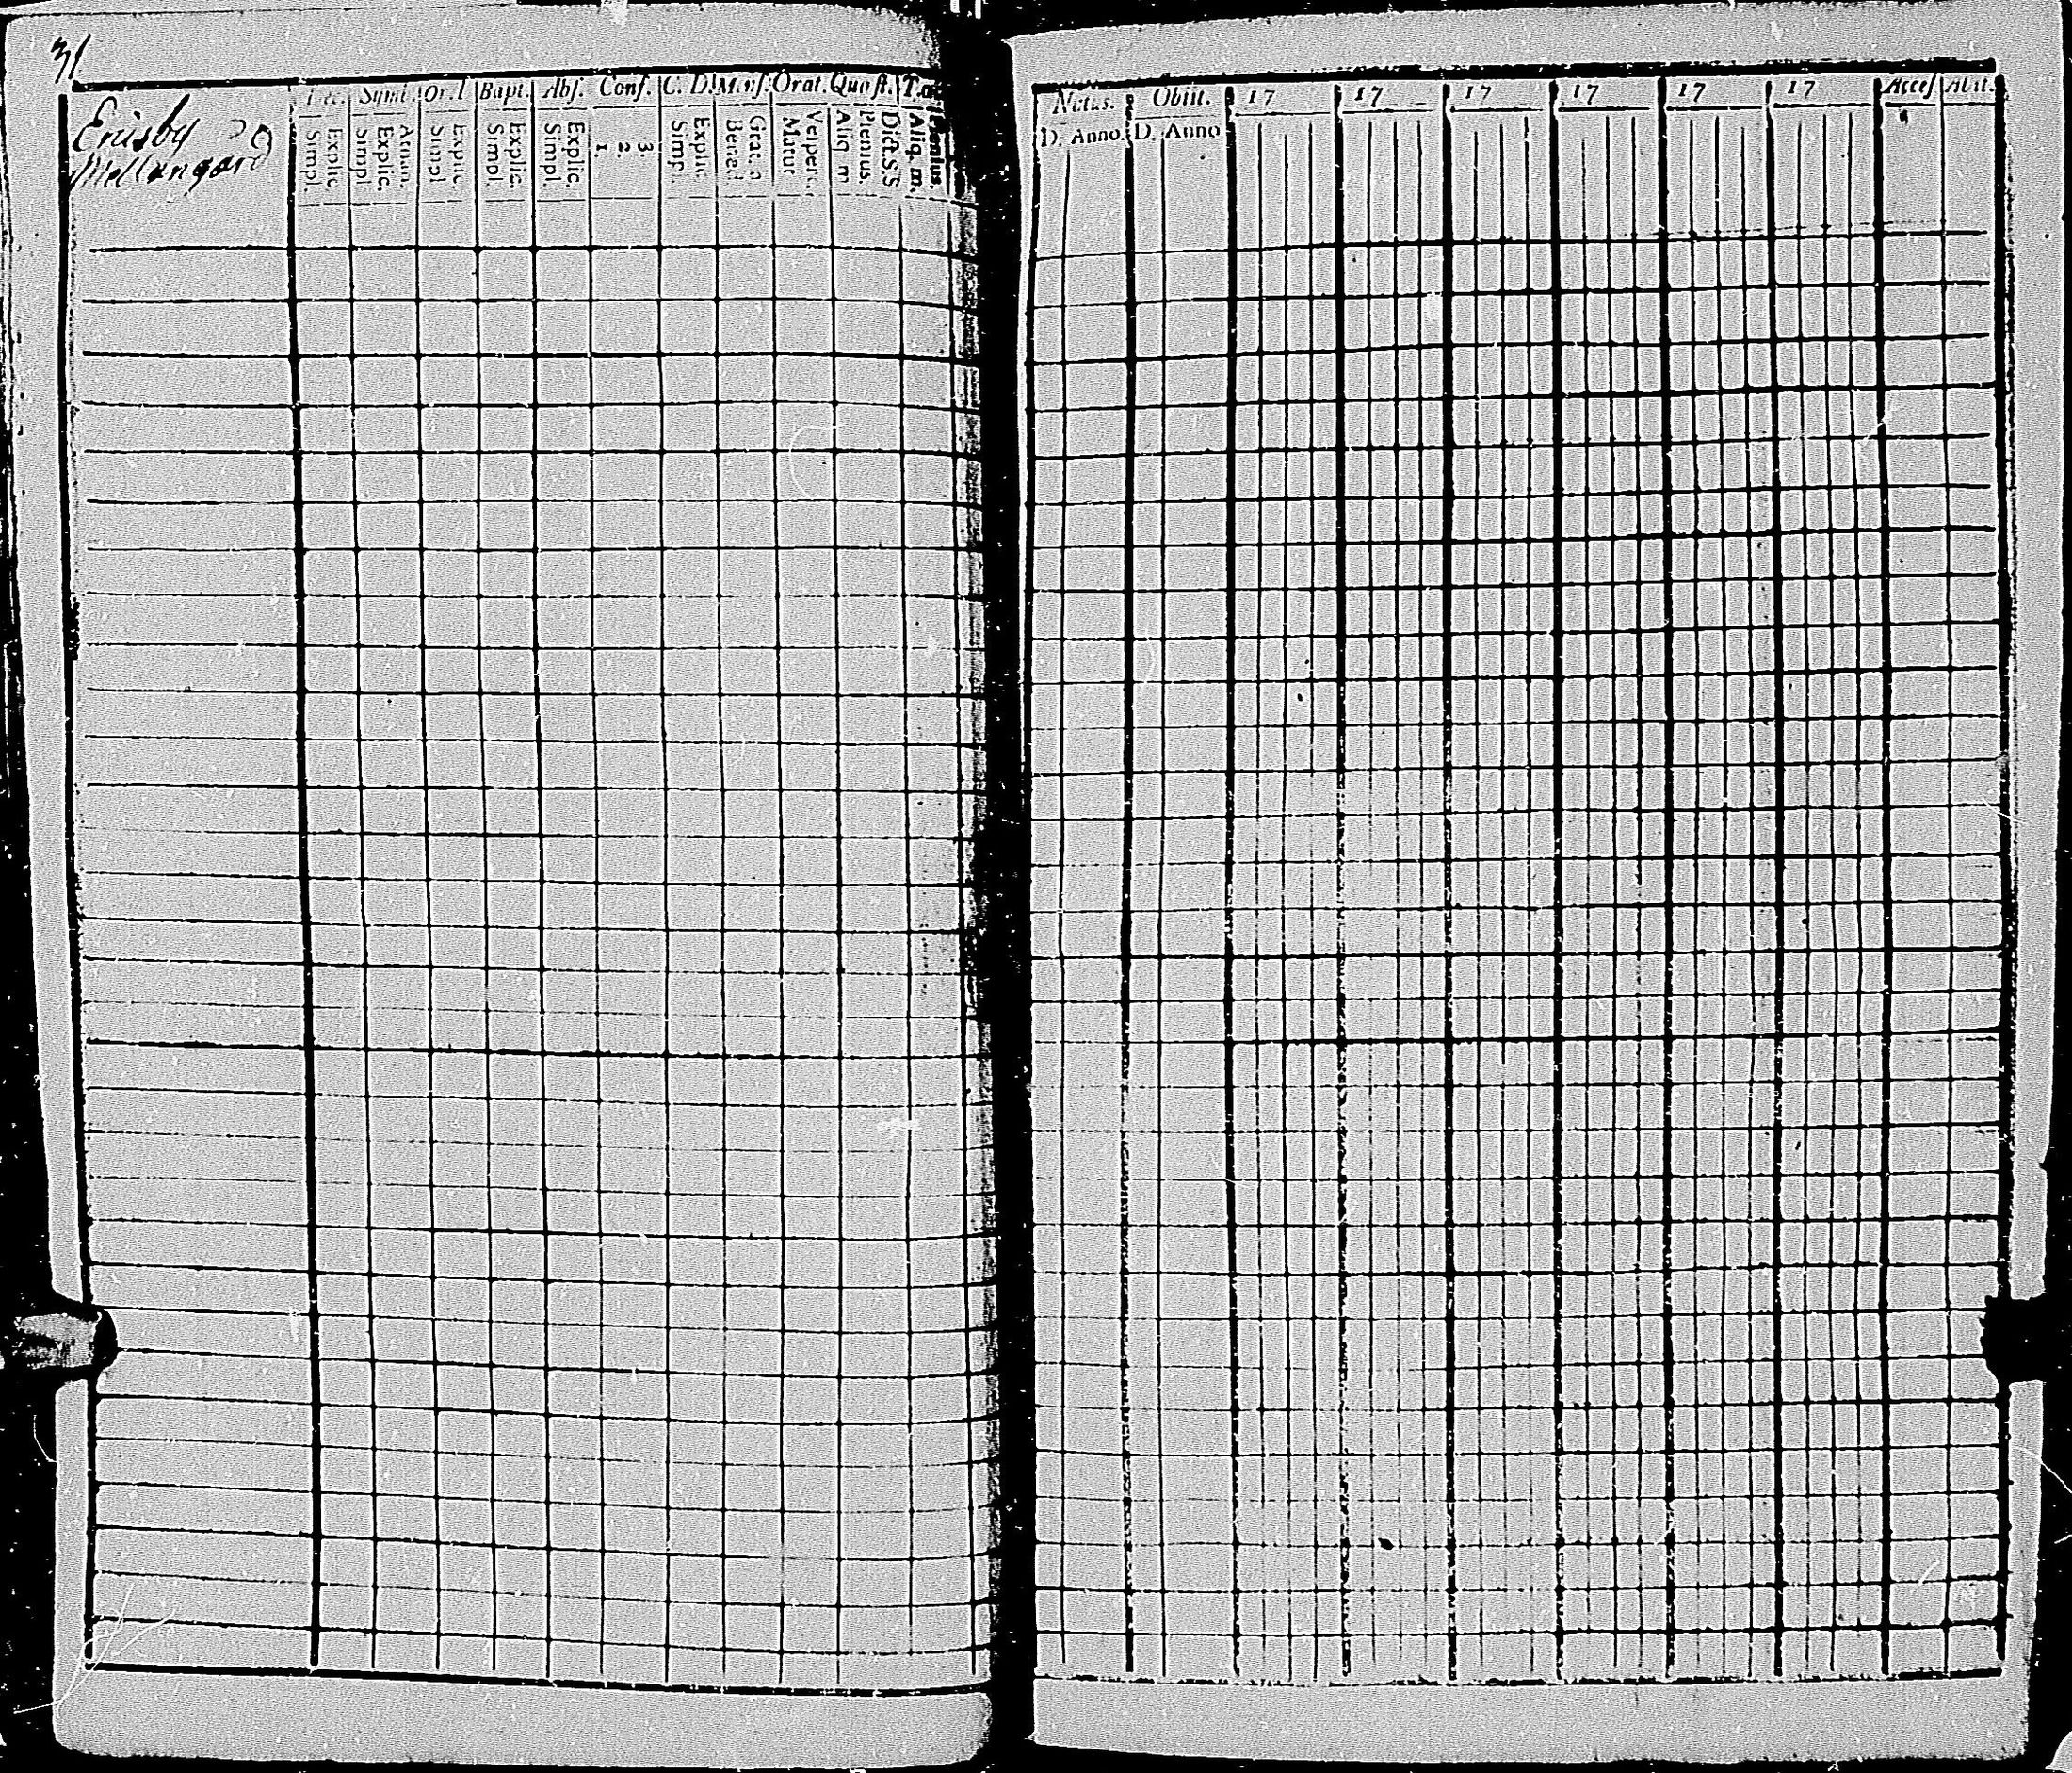 31
Erisby
Mellangård
Symb. Or. D Bapt. Abs. Conf. C. D. Mens. Orat. Quæst.
Simpl. Explic. Simpl. Explic. Athan. Simpl. Explic. Simpl. Explic. Simpl. Explic. 1. 2. 3. Simp. Explic. Bened. Grat. a Matut. Vespert. Aliq. m. Plenius. Dict. S S Aliq. m. Plenius.
Natus. Obiit. 17 17 17 17 17 17 Access Abit.
D. Anno. D. Anno